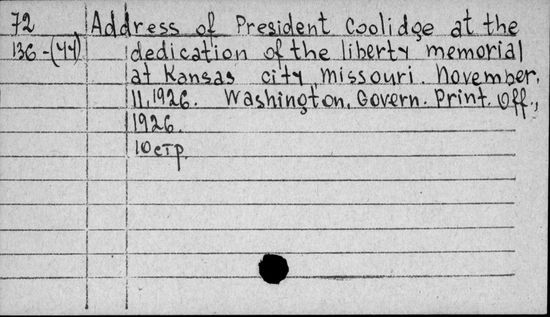 72 Address of President Coolidge at the
136-(44) dedication of the liberty memorial
at Kansas city, Missouri. November,
11, 1926. Washington, Govern. Print. Off.,
1926.
10 стр.